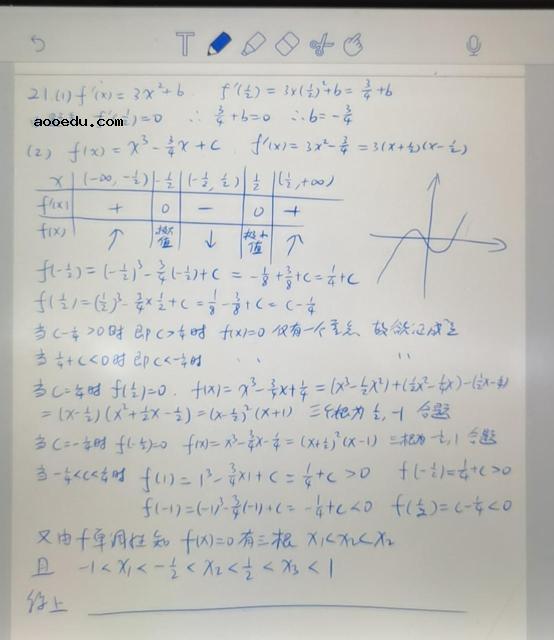 21.(1) f'(x)=3x²+b f'(½)=3×(½)²+b=¾+b
aooedu.com f'(½)=0 ∴ ¾+b=0 ∴b=-¾
(2) f(x)=x³-¾x+c f'(x)=3x²-¾=3(x+½)(x-½)
x (-∞,-½) -½ (-½,½) ½ (½,+∞)
f'(x) + 0 - 0 +
f(x) ↑ 极大值 ↓ 极小值 ↑
f(-½)=(-½)³-¾(-½)+c=-⅛+⅜+c=¼+c
f(½)=(½)³-¾×½+c=⅛-⅜+c=c-¼
当 c-¼>0时 即c>¼时 f(x)=0 仅有一个零点 故欲证成立
当 ¼+c<0时 即c<-¼时 〃 〃
当 c=¼时 f(½)=0. f(x)=x³-¾x+¼=(x³-½x²)+(½x²-¼x)-(½x-¼)
=(x-½)(x²+½x-½)=(x-½)²(x+1) 三个根为½,-1 合题
当 c=-¼时 f(-½)=0 f(x)=x³-¾x-¼=(x+½)²(x-1) 三根为-½,1 合题
当-¼<c<¼时 f(1)=1³-¾×1+c=¼+c>0 f(-½)=¼+c>0
f(-1)=(-1)³-¾(-1)+c=-¼+c<0 f(½)=c-¼<0
又由f单调性知 f(x)=0有三根 x₁<x₂<x₂
且 -1<x₁<-½<x₂<½<x₃<1
综上